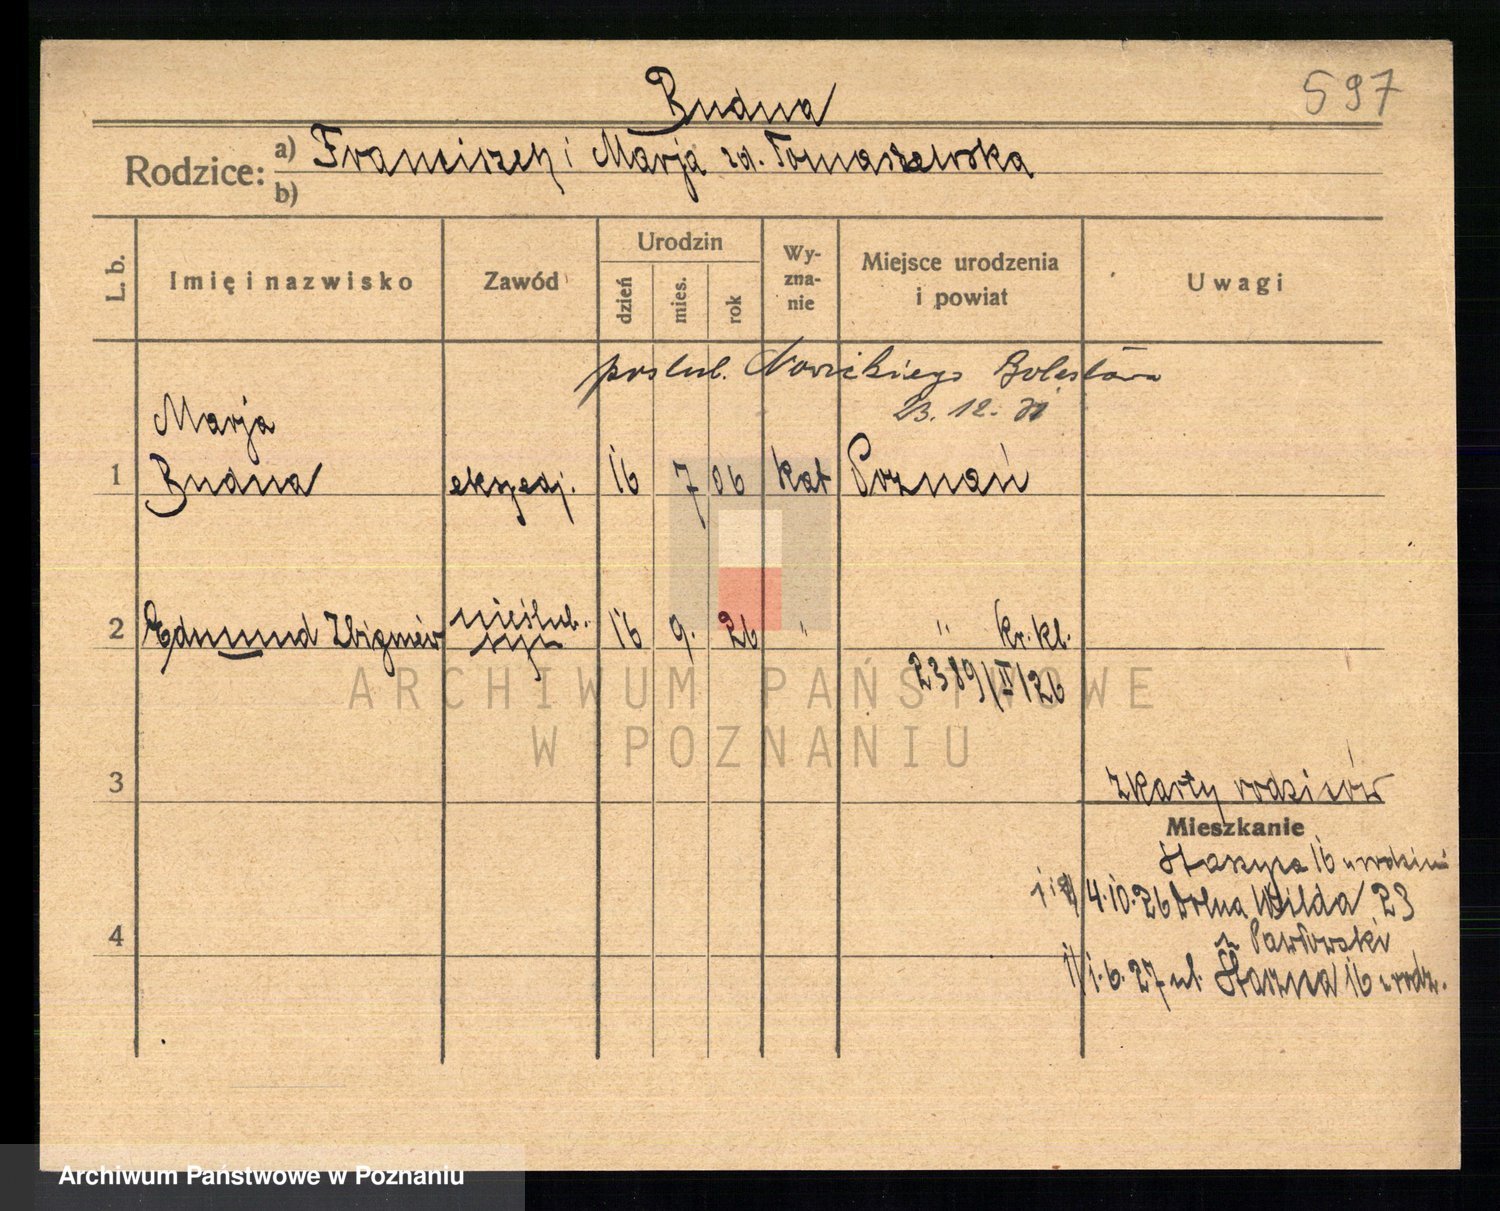 597
Budna
Rodzice: a) Franciszek i Marja zd. Tomaszewska
b)
L. b. Imię i nazwisko Zawód Urodzin dzień mies. rok Wy-zna-nie Miejsce urodzenia i powiat Uwagi
poślub. Nowickiego Bolesława
23. 12. 31
Marja
1 Budna ekspedj. 16 7 06 kat Poznań
2 Edmund Zbigniew nieślub. syn 16 9. 26 " " kr. kl.
2389/II/26
ARCHIWUM PAŃSTWOWE
W POZNANIU
3 z karty rodziców
Mieszkanie
16 u rodzin
4.10.26 Dolna Wilda 23
4 z Pawłowski
1.6.27 ul. 16 u rodz.
Archiwum Państwowe w Poznaniu